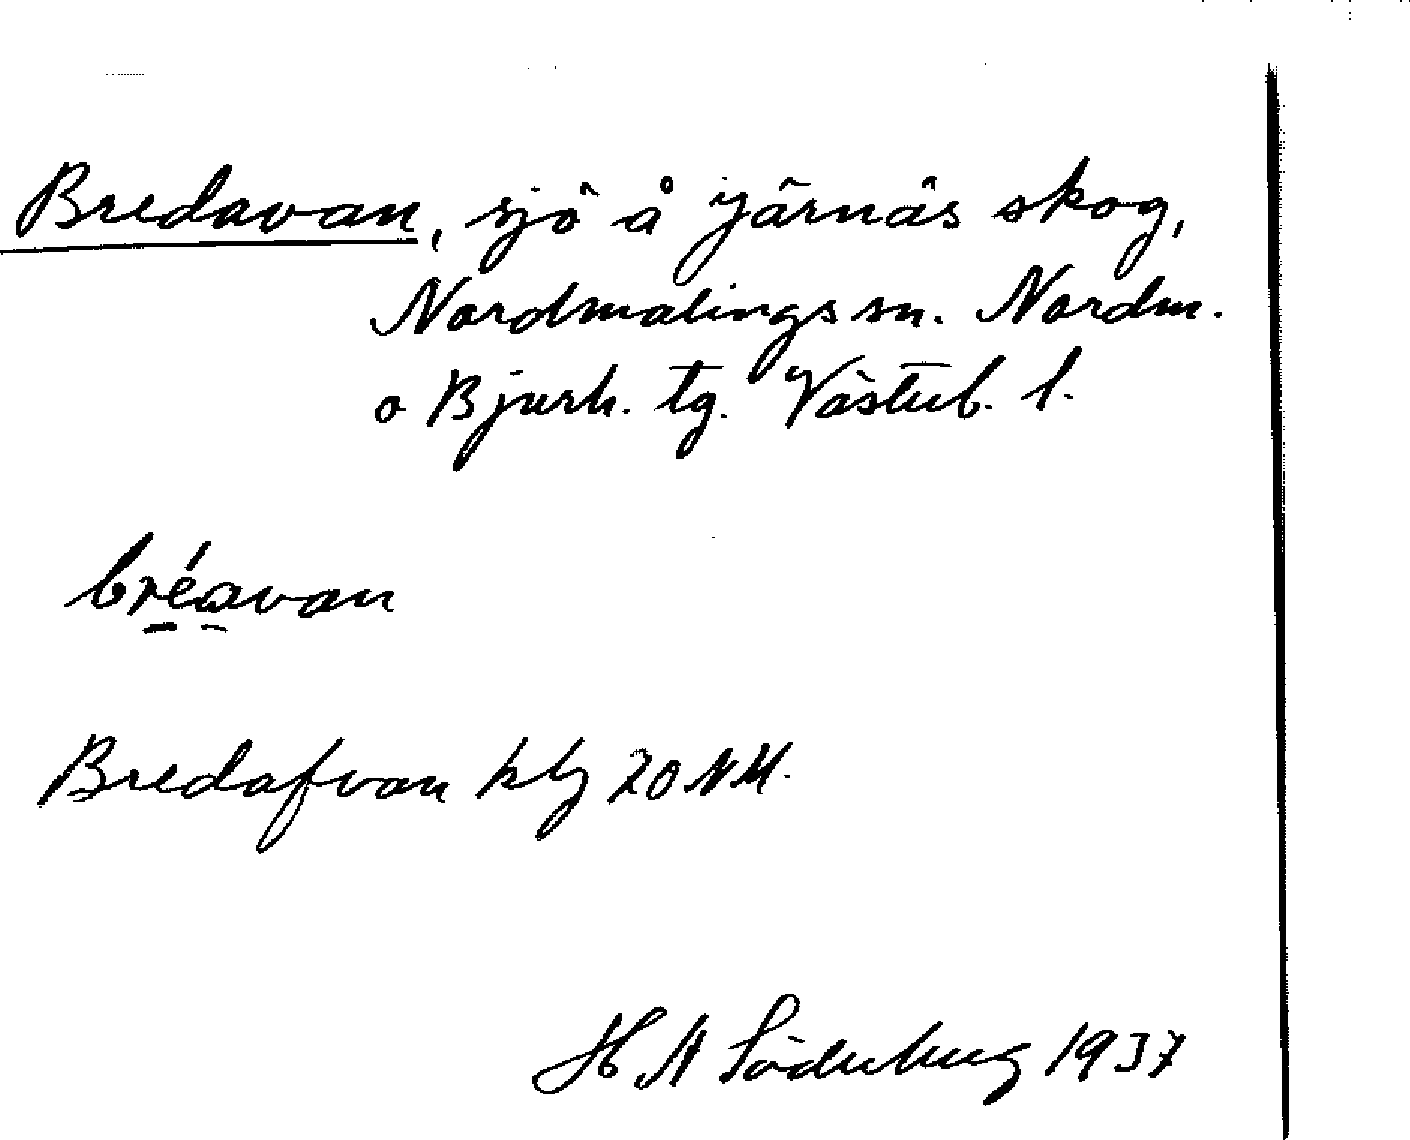 Bredavan, sjö å Järnäs skog,
Nordmalings sn. Nordm.
o Bjurh. tg. Västerb. l.
bréavan
Bredafvan kbg 20 NV.
H A Söderberg 1937